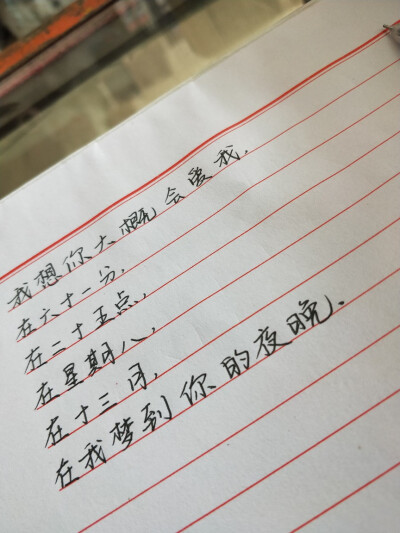 我想你大概会爱我.
在六十一分,
在二十五点,
在星期八,
在十三月,
在我梦到你的夜晚.